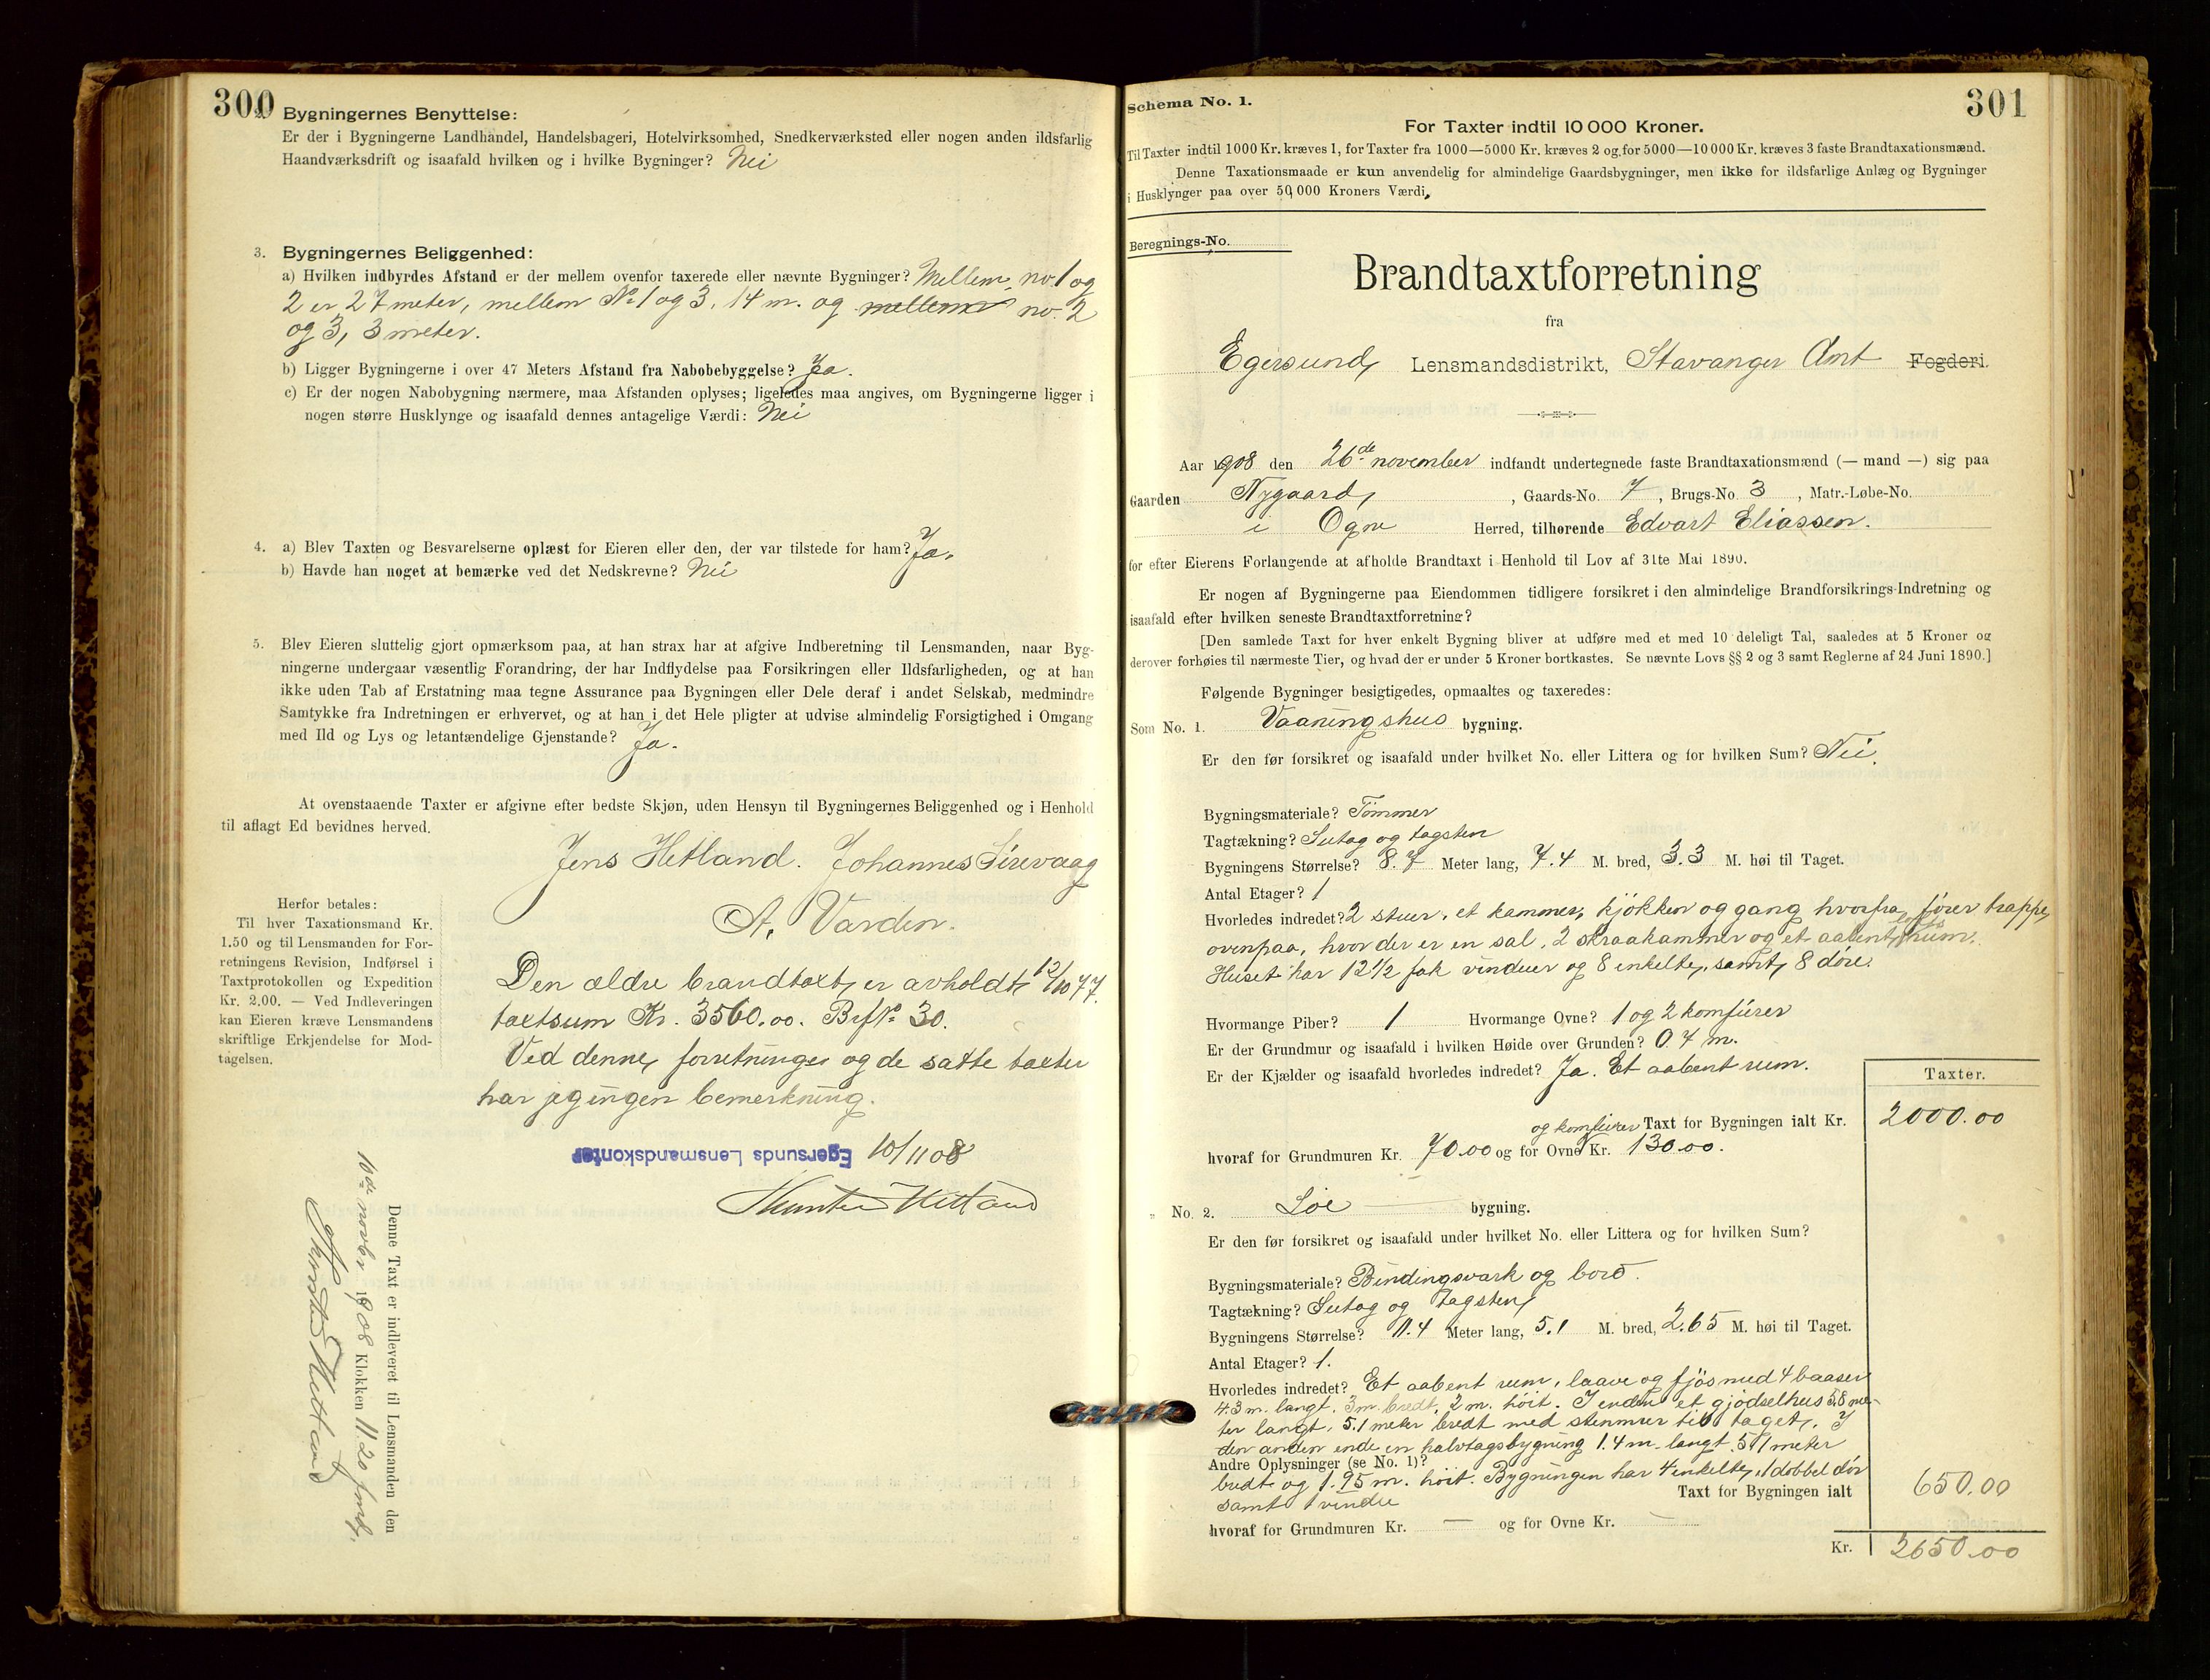 300
2. Bygningernes Benyttelse:
Er der i Bygningerne Landhandel, Handelsbageri, Hotelvirksomhed, Snedkerværksted eller nogen anden ildsfarlig
Haandværksdrift og isaafald hvilken og i hvilke Bygninger? Nei
3. Bygningernes Beliggenhed:
a) Hvilken indbyrdes Afstand er der mellem ovenfor taxerede eller nævnte Bygninger? Mellem no. 1 og
2 er 27 meter, mellem No 1 og 3, 14 m. og mellem no. 2
og 3, 3 meter.
b) Ligger Bygningerne i over 47 Meters Afstand fra Nabobebyggelse? Ja.
c) Er der nogen Nabobygning nærmere, maa Afstanden oplyses; ligeledes maa angives, om Bygningerne ligger i
nogen større Husklynge og isaafald dennes antagelige Værdi: Nei
4. a) Blev Taxten og Besvarelserne oplæst for Eieren eller den, der var tilstede for ham? Ja.
b) Havde han noget at bemærke ved det Nedskrevne? Nei
5. Blev Eieren sluttelig gjort opmærksom paa, at han strax har at afgive Indberetning til Lensmanden, naar Byg-
ningerne undergaar væsentlig Forandring, der har Indflydelse paa Forsikringen eller Ildsfarligheden, og at han
ikke uden Tab af Erstatning maa tegne Assurance paa Bygningen eller Dele deraf i andet Selskab, medmindre
Samtykke fra Indretningen er erhvervet, og at han i det Hele pligter at udvise almindelig Forsigtighed i Omgang
med Ild og Lys og letantændelige Gjenstande? Ja.
At ovenstaaende Taxter er afgivne efter bedste Skjøn, uden Hensyn til Bygningernes Beliggenhed og i Henhold
til aflagt Ed bevidnes herved.
Jens Hetland. Johannes Sirevaag
A. Varden.
Herfor betales:
Til hver Taxationsmand Kr.
1.50 og til Lensmanden for For-
retningens Revision, Indførsel i
Taxtprotokollen og Expedition
Kr. 2.00. — Ved Indleveringen
kan Eieren kræve Lensmandens
skriftlige Erkjendelse for Mod-
tagelsen.
Den ældre brandtaxt er avholdt 12/10 77.
taxtsum Kr. 3560.00. Brf No 30.
Ved denne forretninge og de satte taxter
har jeg ingen bemerkning.
Egersunds Lensmandskontor 10/11 08
Hetland
Denne Taxt er indleveret til Lensmanden den
16de novbr 1908 Klokken 11.20 fmd.
Hetland
Schema No. 1.
301
For Taxter indtil 10 000 Kroner.
Til Taxter indtil 1000 Kr. kræves 1, for Taxter fra 1000—5000 Kr. kræves 2 og for 5000—10 000 Kr. kræves 3 faste Brandtaxationsmænd.
Denne Taxationsmaade er kun anvendelig for almindelige Gaardsbygninger, men ikke for ildsfarlige Anlæg og Bygninger
i Husklynger paa over 50 000 Kroners Værdi.
Beregnings-No.
Brandtaxtforretning
fra
Egersund Lensmandsdistrikt, Stavanger Amt Fogderi.
Aar 1908 den 26de november indfandt undertegnede faste Brandtaxationsmænd (— mand —) sig paa
Gaarden Nygaard, Gaards-No. 7, Brugs-No. 3, Matr.-Løbe-No.
i Ogne Herred, tilhørende Edvart Eliassen.
for efter Eierens Forlangende at afholde Brandtaxt i Henhold til Lov af 31te Mai 1890.
Er nogen af Bygningerne paa Eiendommen tidligere forsikret i den almindelige Brandforsikrings-Indretning og
isaafald efter hvilken seneste Brandtaxtforretning?
[Den samlede Taxt for hver enkelt Bygning bliver at udføre med et med 10 deleligt Tal, saaledes at 5 Kroner og
derover forhøies til nærmeste Tier, og hvad der er under 5 Kroner bortkastes. Se nævnte Lovs §§ 2 og 3 samt Reglerne af 24 Juni 1890.]
Følgende Bygninger besigtigedes, opmaaltes og taxeredes:
Som No. 1. Vaaningshus bygning.
Er den før forsikret og isaafald under hvilket No. eller Littera og for hvilken Sum? Nei.
Bygningsmateriale? Tømmer
Tagtækning? Sutag og tagsten
Bygningens Størrelse? 8.7 Meter lang, 7.4 M. bred, 3.3 M. høi til Taget.
Antal Etager? 1
Hvorledes indredet? 2 stuer, et kammer, kjøkken og gang hvorfra fører trappe
ovenpaa, hvor der er en sal, 2 skraakammer og et aabent rum.
Huset har 12 1/2 fak vinduer og 8 enkelte, samt 8 døre.
Hvormange Piber? 1 Hvormange Ovne? 1 og 2 komfürer
Er der Grundmur og isaafald i hvilken Høide over Grunden? 0.4 m.
Er der Kjælder og isaafald hvorledes indredet? Ja. Et aabent rum.
Taxter.
og komfürer
Taxt for Bygningen ialt Kr. 2000.00
hvoraf for Grundmuren Kr. 70.00 og for Ovne Kr. 130.00.
" No. 2. Løe bygning.
Er den før forsikret og isaafald under hvilket No. eller Littera og for hvilken Sum?
Bygningsmateriale? Bindingsvark og bord.
Tagtækning? Sutag og tagsten
Bygningens Størrelse? 11.4 Meter lang, 5.1 M. bred, 2.65 M. høi til Taget.
Antal Etager? 1.
Hvorledes indredet? Et aabent rum, laave og fjøs med 4 baaser
4.3 m. langt, 3 m. bredt, 2 m. höit. I enden et gjødselhus 3.8 me-
ter langt, 5.1 meter bredt med stenmur til taget. I
den anden ende en halvtagsbygning 1.4 m. langt 5.1 meter
Andre Oplysninger (se No. 1)?
bredt og 1.95 m. höit. Bygningen har 4 enkelte, 1 dobbel dør
samt 1 vindu
Taxt for Bygningen ialt 650.00
hvoraf for Grundmuren Kr. — og for Ovne Kr. —
Kr. 2650.00